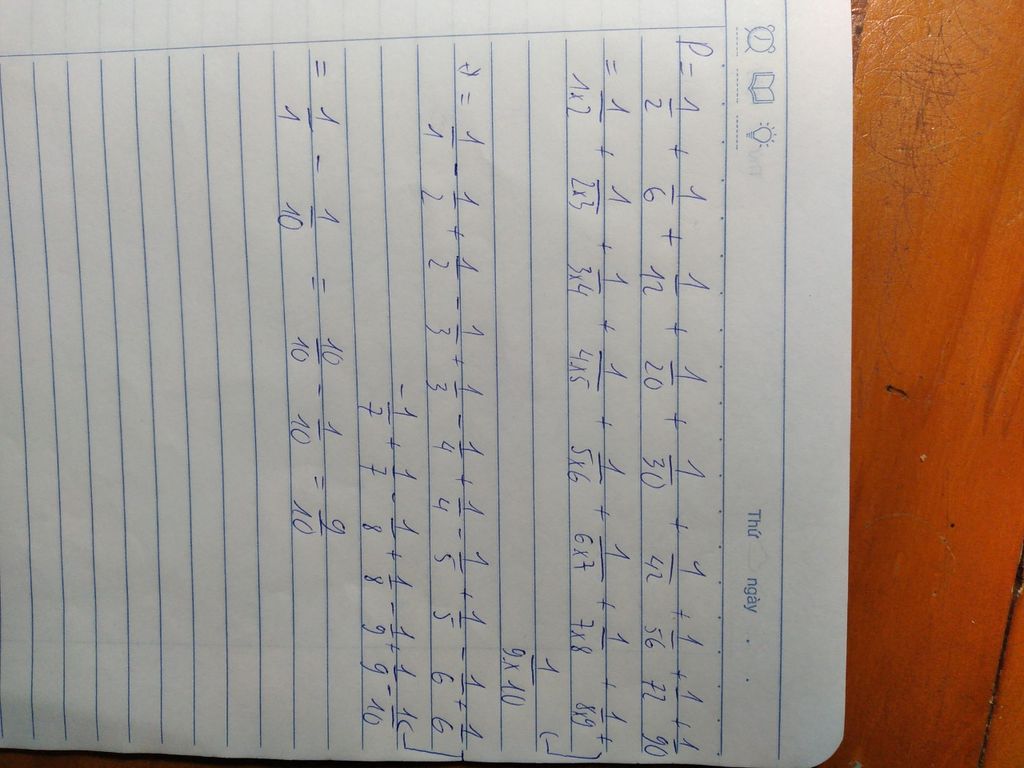 Thứ ngày
P = 1/2 + 1/6 + 1/12 + 1/20 + 1/30 + 1/42 + 1/56 + 1/72 + 1/90
= 1/1x2 + 1/2x3 + 1/3x4 + 1/4x5 + 1/5x6 + 1/6x7 + 1/7x8 + 1/8x9 +
1/9x10
= 1/1 - 1/2 + 1/2 - 1/3 + 1/3 - 1/4 + 1/4 - 1/5 + 1/5 - 1/6 + 1/6
- 1/7 + 1/7 - 1/8 + 1/8 - 1/9 + 1/9 - 1/10
= 1/1 - 1/10 = 10/10 - 1/10 = 9/10